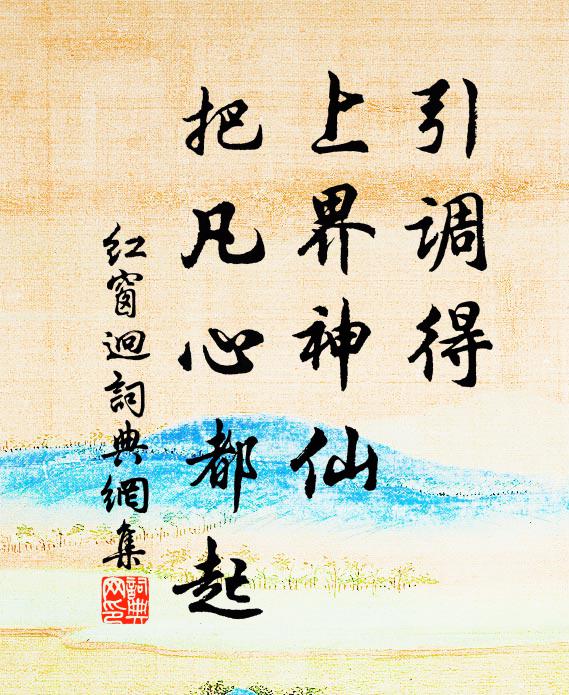 引调得
上界神仙
把凡心都起
红窗迥詞典網集
詞典